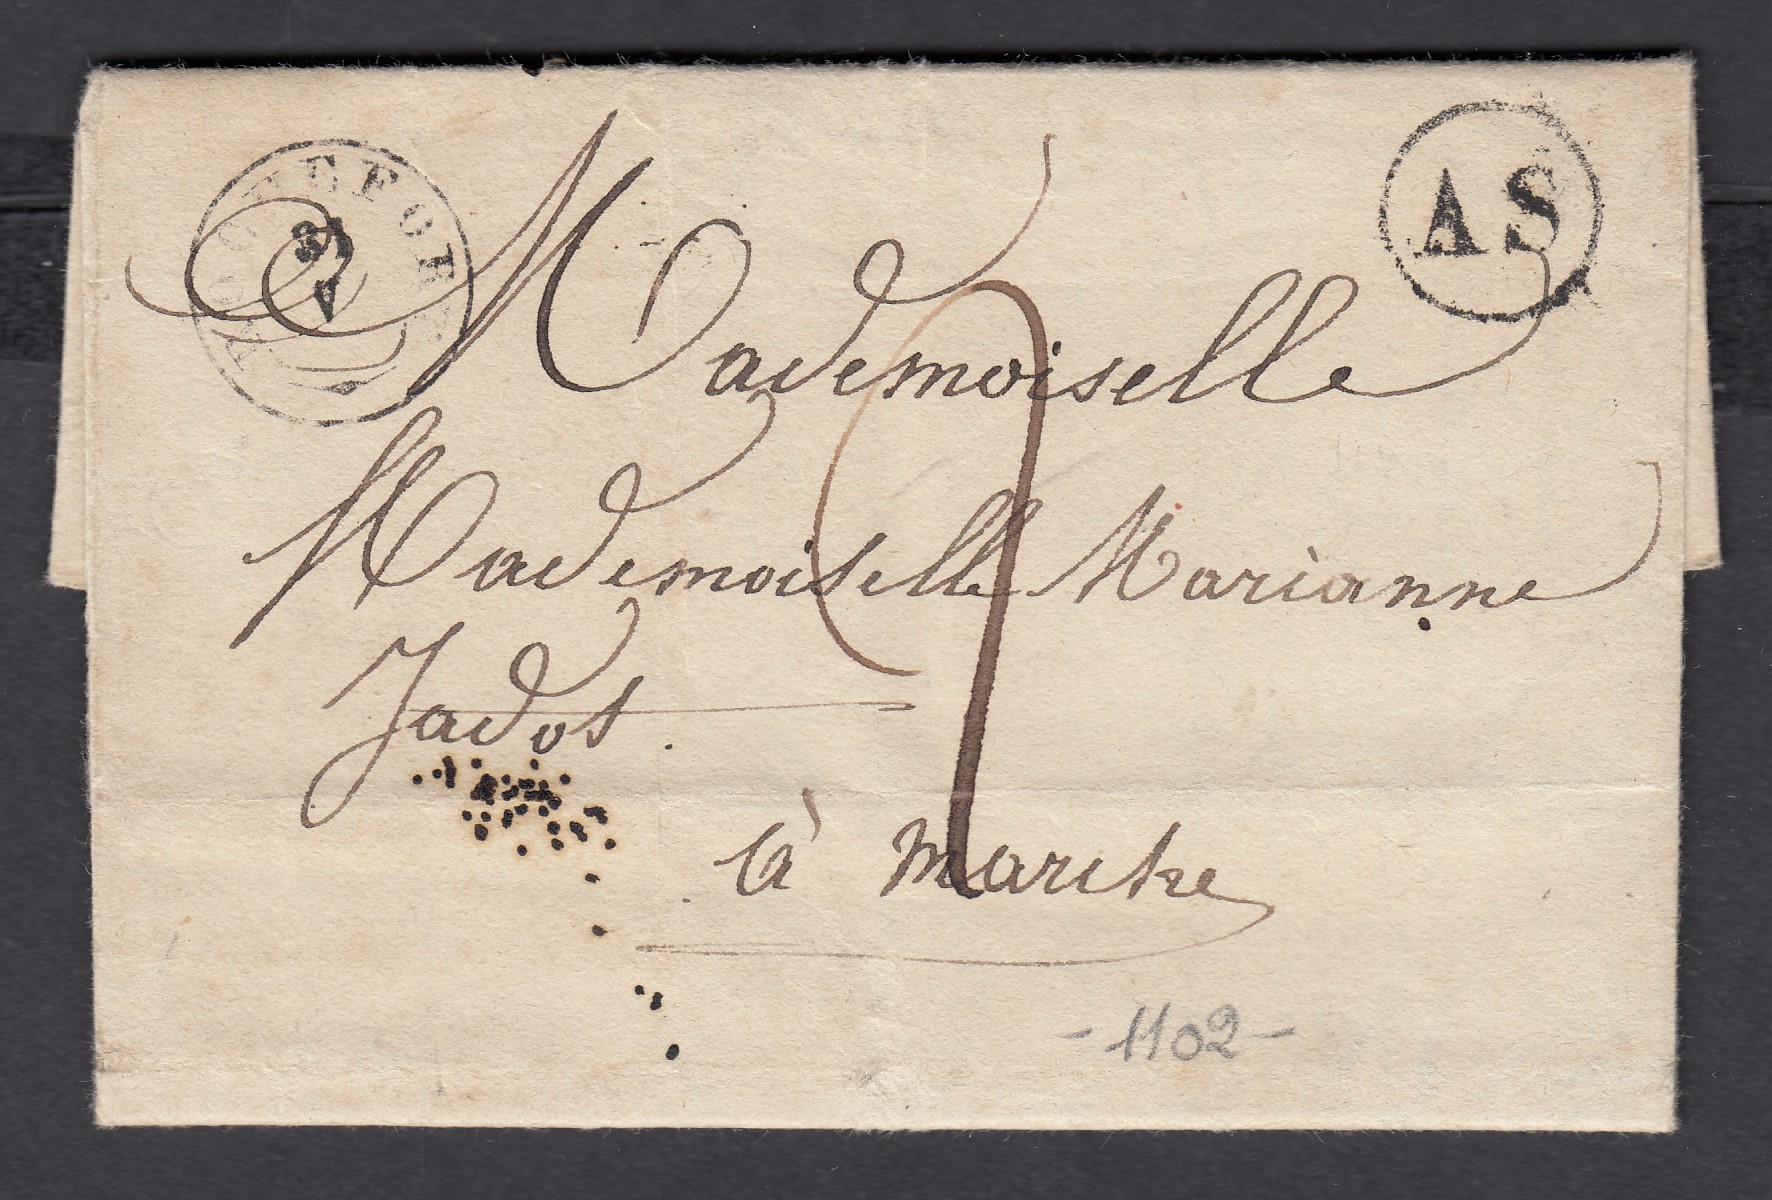 ROCHEFORT
31
V
AS
Mademoiselle
Mademoiselle Marianne
Jadot.
à marche
2
- 1102 -